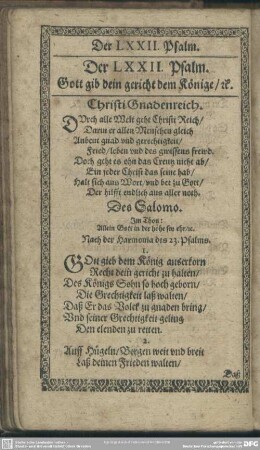 Der LXXII. Psalm.
Der LXXII. Psalm.
Gott gib dein gericht dem Könige/ ꝛc.
Christi Gnadenreich.
DVrch alle Welt geht Christi Reich/
Darin er allen Menschen gleich
Anbeut gnad vnd gerechtigkeit/
Fried/ leben vnd des gwissens frewd.
Doch geht es ohn das Creutz nicht ab/
Ein jeder Christ das seine hab/
Halt sich ans Wort/ vnd bet zu Gott/
Der hilfft endlich aus aller noth.
Des Salomo.
Im Thon:
Allein Gott in der höhe sey ehr/ ꝛc.
Nach der Harmonia des 23. Psalms.
1.
GOtt gieb dem König auserkorn
Recht dein gericht zu halten/
Des Königs Sohn so hoch geborn/
Die Grechtigkeit laß walten/
Daß Er das Volck zu gnaden bring/
Vnd seiner Grechtigkeit geling
Den elenden zu retten.
2.
Auff Hügeln/ Bergen weit vnd breit
Laß deinen Frieden walten/
Daß
DFG